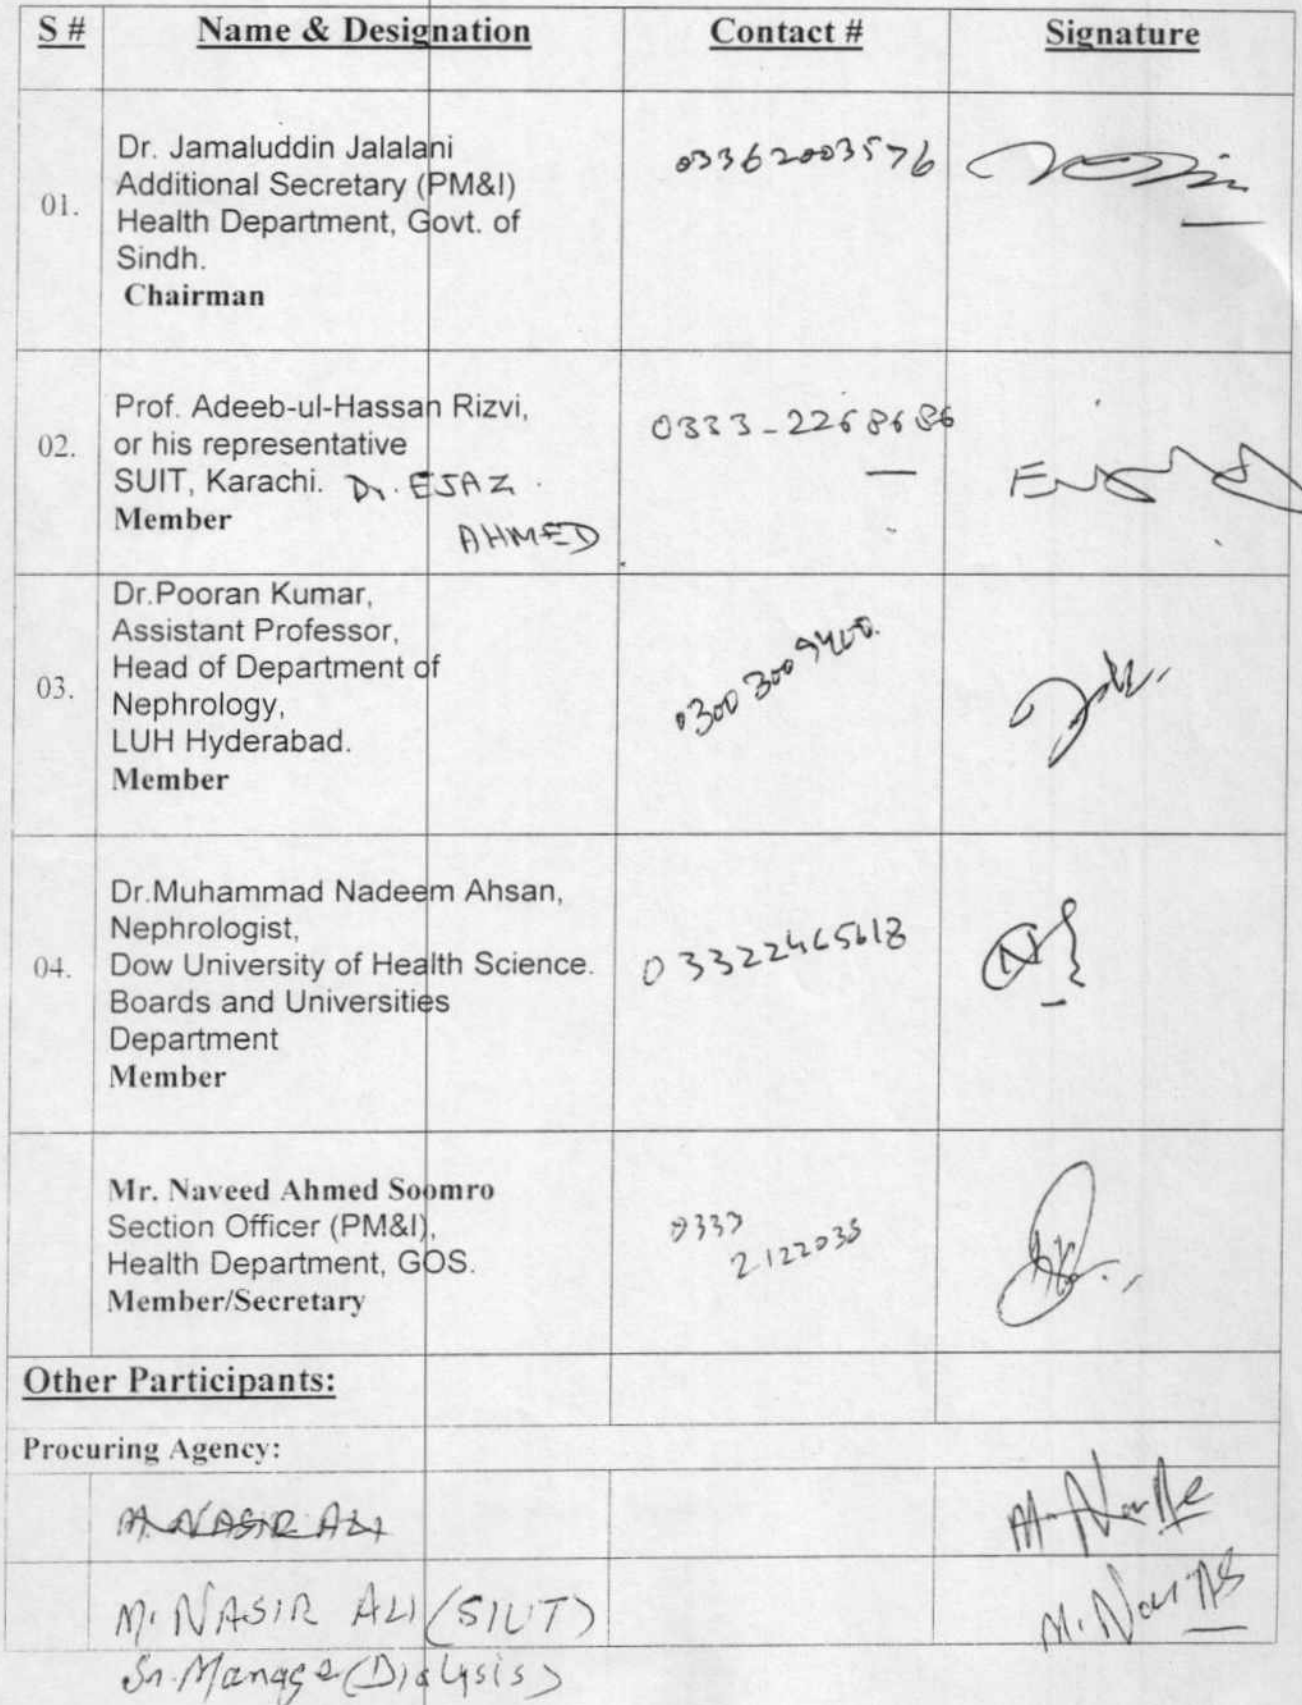 S # Name & Designation Contact # Signature
01.
Dr. Jamaluddin Jalalani
Additional Secretary (PM&I)
Health Department, Govt. of
Sindh.
Chairman
03362003576
02.
Prof. Adeeb-ul-Hassan Rizvi,
or his representative
SUIT, Karachi. Dr. EJAZ
AHMED
Member
0333-2268686
03.
Dr.Pooran Kumar,
Assistant Professor,
Head of Department of
Nephrology,
LUH Hyderabad.
Member
0300 3009400.
04.
Dr.Muhammad Nadeem Ahsan,
Nephrologist,
Dow University of Health Science.
Boards and Universities
Department
Member
03322465618
Mr. Naveed Ahmed Soomro
Section Officer (PM&I),
Health Department, GOS.
Member/Secretary
0333
2122035
Other Participants:
Procuring Agency:
M. NASIR ALI
M. NASIR ALI (SIUT)
Sr. Manage (Dialysis)